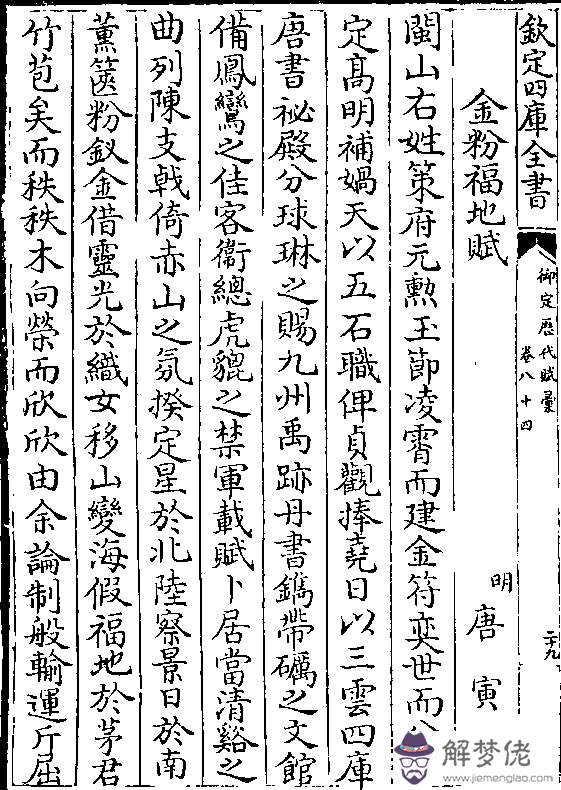 欽定四庫全書
御定歷代賦彙
卷八十四
二十九
金粉福地賦
明 唐寅
閩山右姓策府元勲玉節凌霄而建金符奕世而
定髙明補媧天以五石職俾貞觀捧堯日以三雲四庫
唐書祕殿分球琳之賜九州禹跡丹書鐫帶礪之文館
備鳳鸞之佳客衞總虎貔之禁軍載賦卜居當清谿之
曲列陳支戟倚赤山之氛揆定星於北陸察景日於南
薰篋粉釵金借靈光於織女移山變海假福地於茅君
竹苞矣而秩秩木向榮而欣欣由余論制般輸運斤屈
解梦佬
www.jiemenglao.com